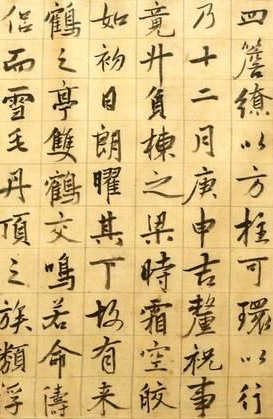 四簷繚以方柱可環以行
乃十二月庚申吉釐祝事
竟廾負棟之梁時霜空皎
如初日朗曜其下故有来
鶴之亭雙鶴交鳴若命濤
侣而雪毛丹頂之族類浮